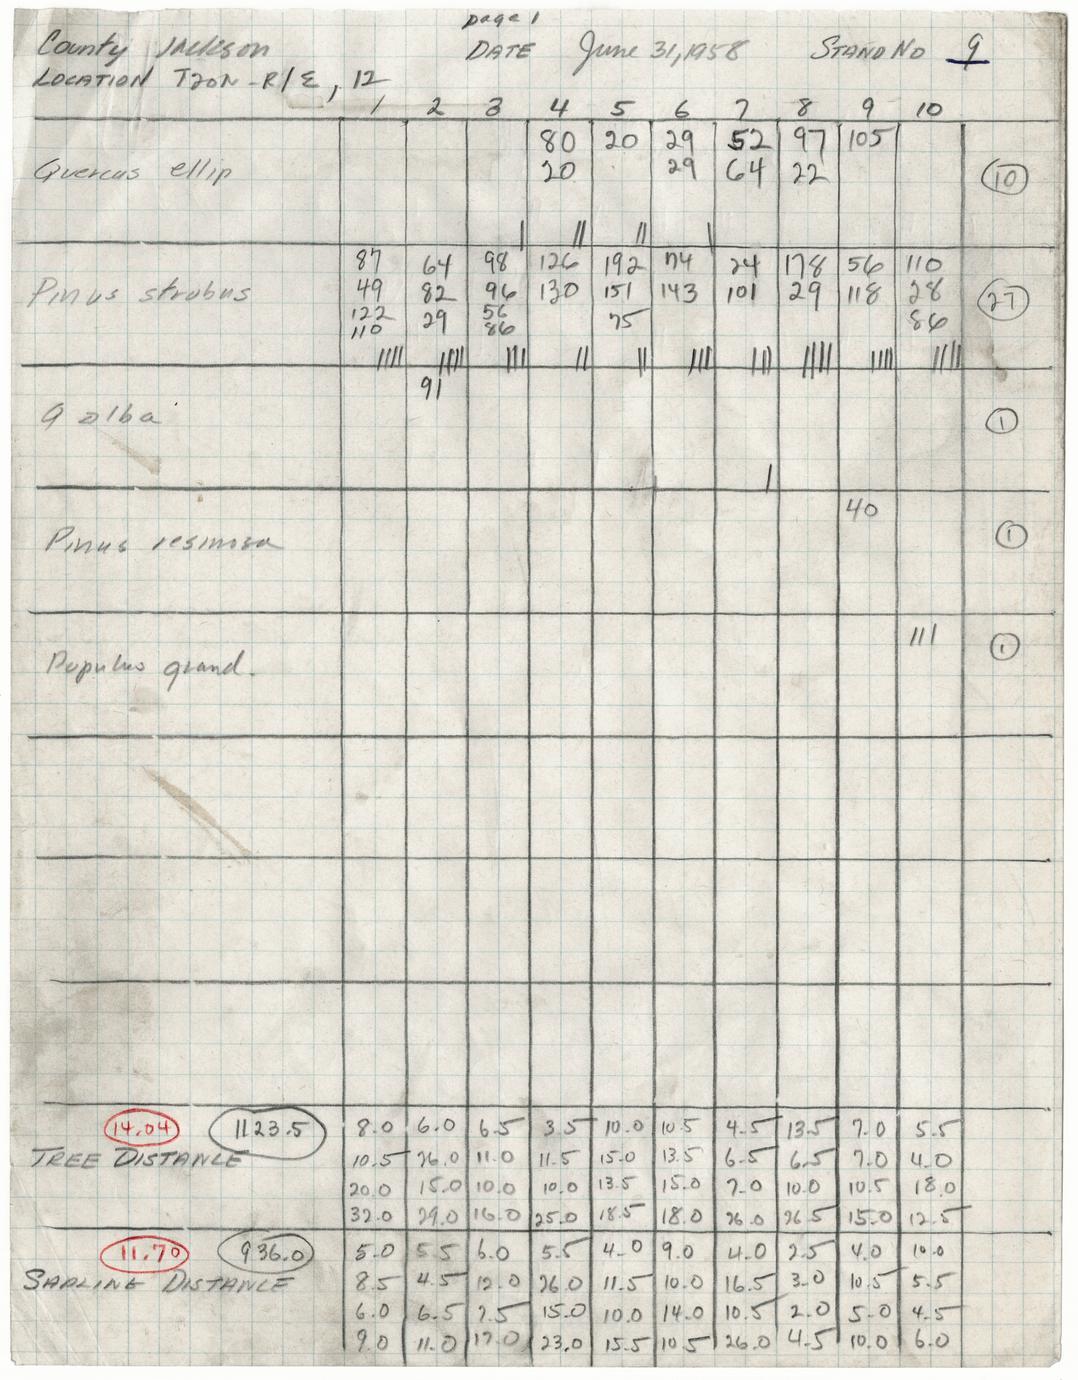 page 1
County Jackson DATE June 31, 1958 STAND NO 9
LOCATION T20N-R1E, 12
1 2 3 4 5 6 7 8 9 10
80 20 29 52 97 105
Quercus ellip 20 29 64 22 10
| || || |
87 64 98 126 192 74 24 178 56 110
Pinus strobus 49 82 96 130 151 143 101 29 118 28 27
122 29 56 75 86
110 86
|||| |||| ||| || || ||| ||| |||| |||| ||||
91
Q alba 1
|
40
Pinus resinosa 1
||| 1
Populus grand.
14.04 1123.5 8.0 6.0 6.5 3.5 10.0 10.5 4.5 13.5 7.0 5.5
TREE DISTANCE 10.5 26.0 11.0 11.5 15.0 13.5 6.5 6.5 7.0 4.0
20.0 15.0 10.0 10.0 13.5 15.0 7.0 10.0 10.5 18.0
32.0 29.0 16.0 25.0 18.5 18.0 26.0 26.5 15.0 12.5
11.70 936.0 5.0 5.5 6.0 5.5 4.0 9.0 4.0 2.5 4.0 10.0
SAPLINE DISTANCE 8.5 4.5 12.0 26.0 11.5 10.0 16.5 3.0 10.5 5.5
6.0 6.5 7.5 15.0 10.0 14.0 10.5 2.0 5.0 4.5
9.0 11.0 17.0 23.0 15.5 10.5 26.0 4.5 10.0 6.0